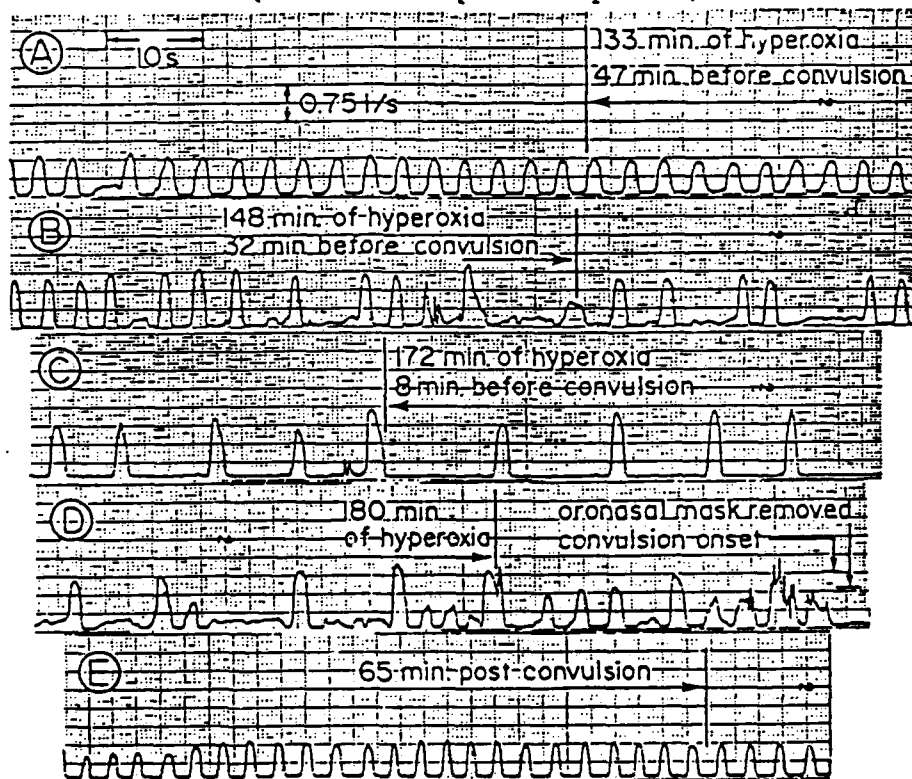 A
10s
0.75 l/s
133 min. of hyperoxia
47 min before convulsion
B
148 min. of hyperoxia
32 min before convulsion
C
172 min. of hyperoxia
8 min. before convulsion
D
180 min.
of hyperoxia
oronasal mask removed
convulsion onset
E
65 min. post-convulsion